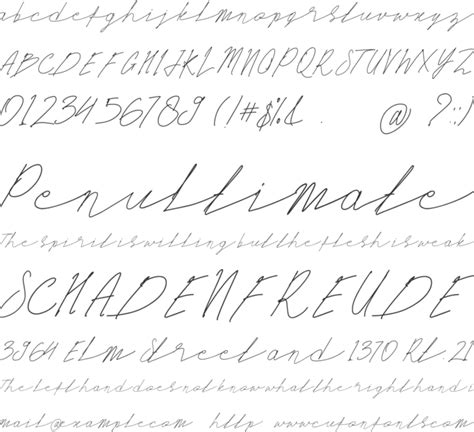 abcdefghijklmnopqrstuvwxyz
ABCDEFGHIJKLMNOPQRSTUVWXYZ
0123456789 (!#%& @ ?:;)
Penultimate
The spirit is willing but the flesh is weak
SCHADENFREUDE
3964 Elm Street and 1370 Rt. 21
The left hand does not know what the right hand i
mail@example.com http www.cufonfonts.c